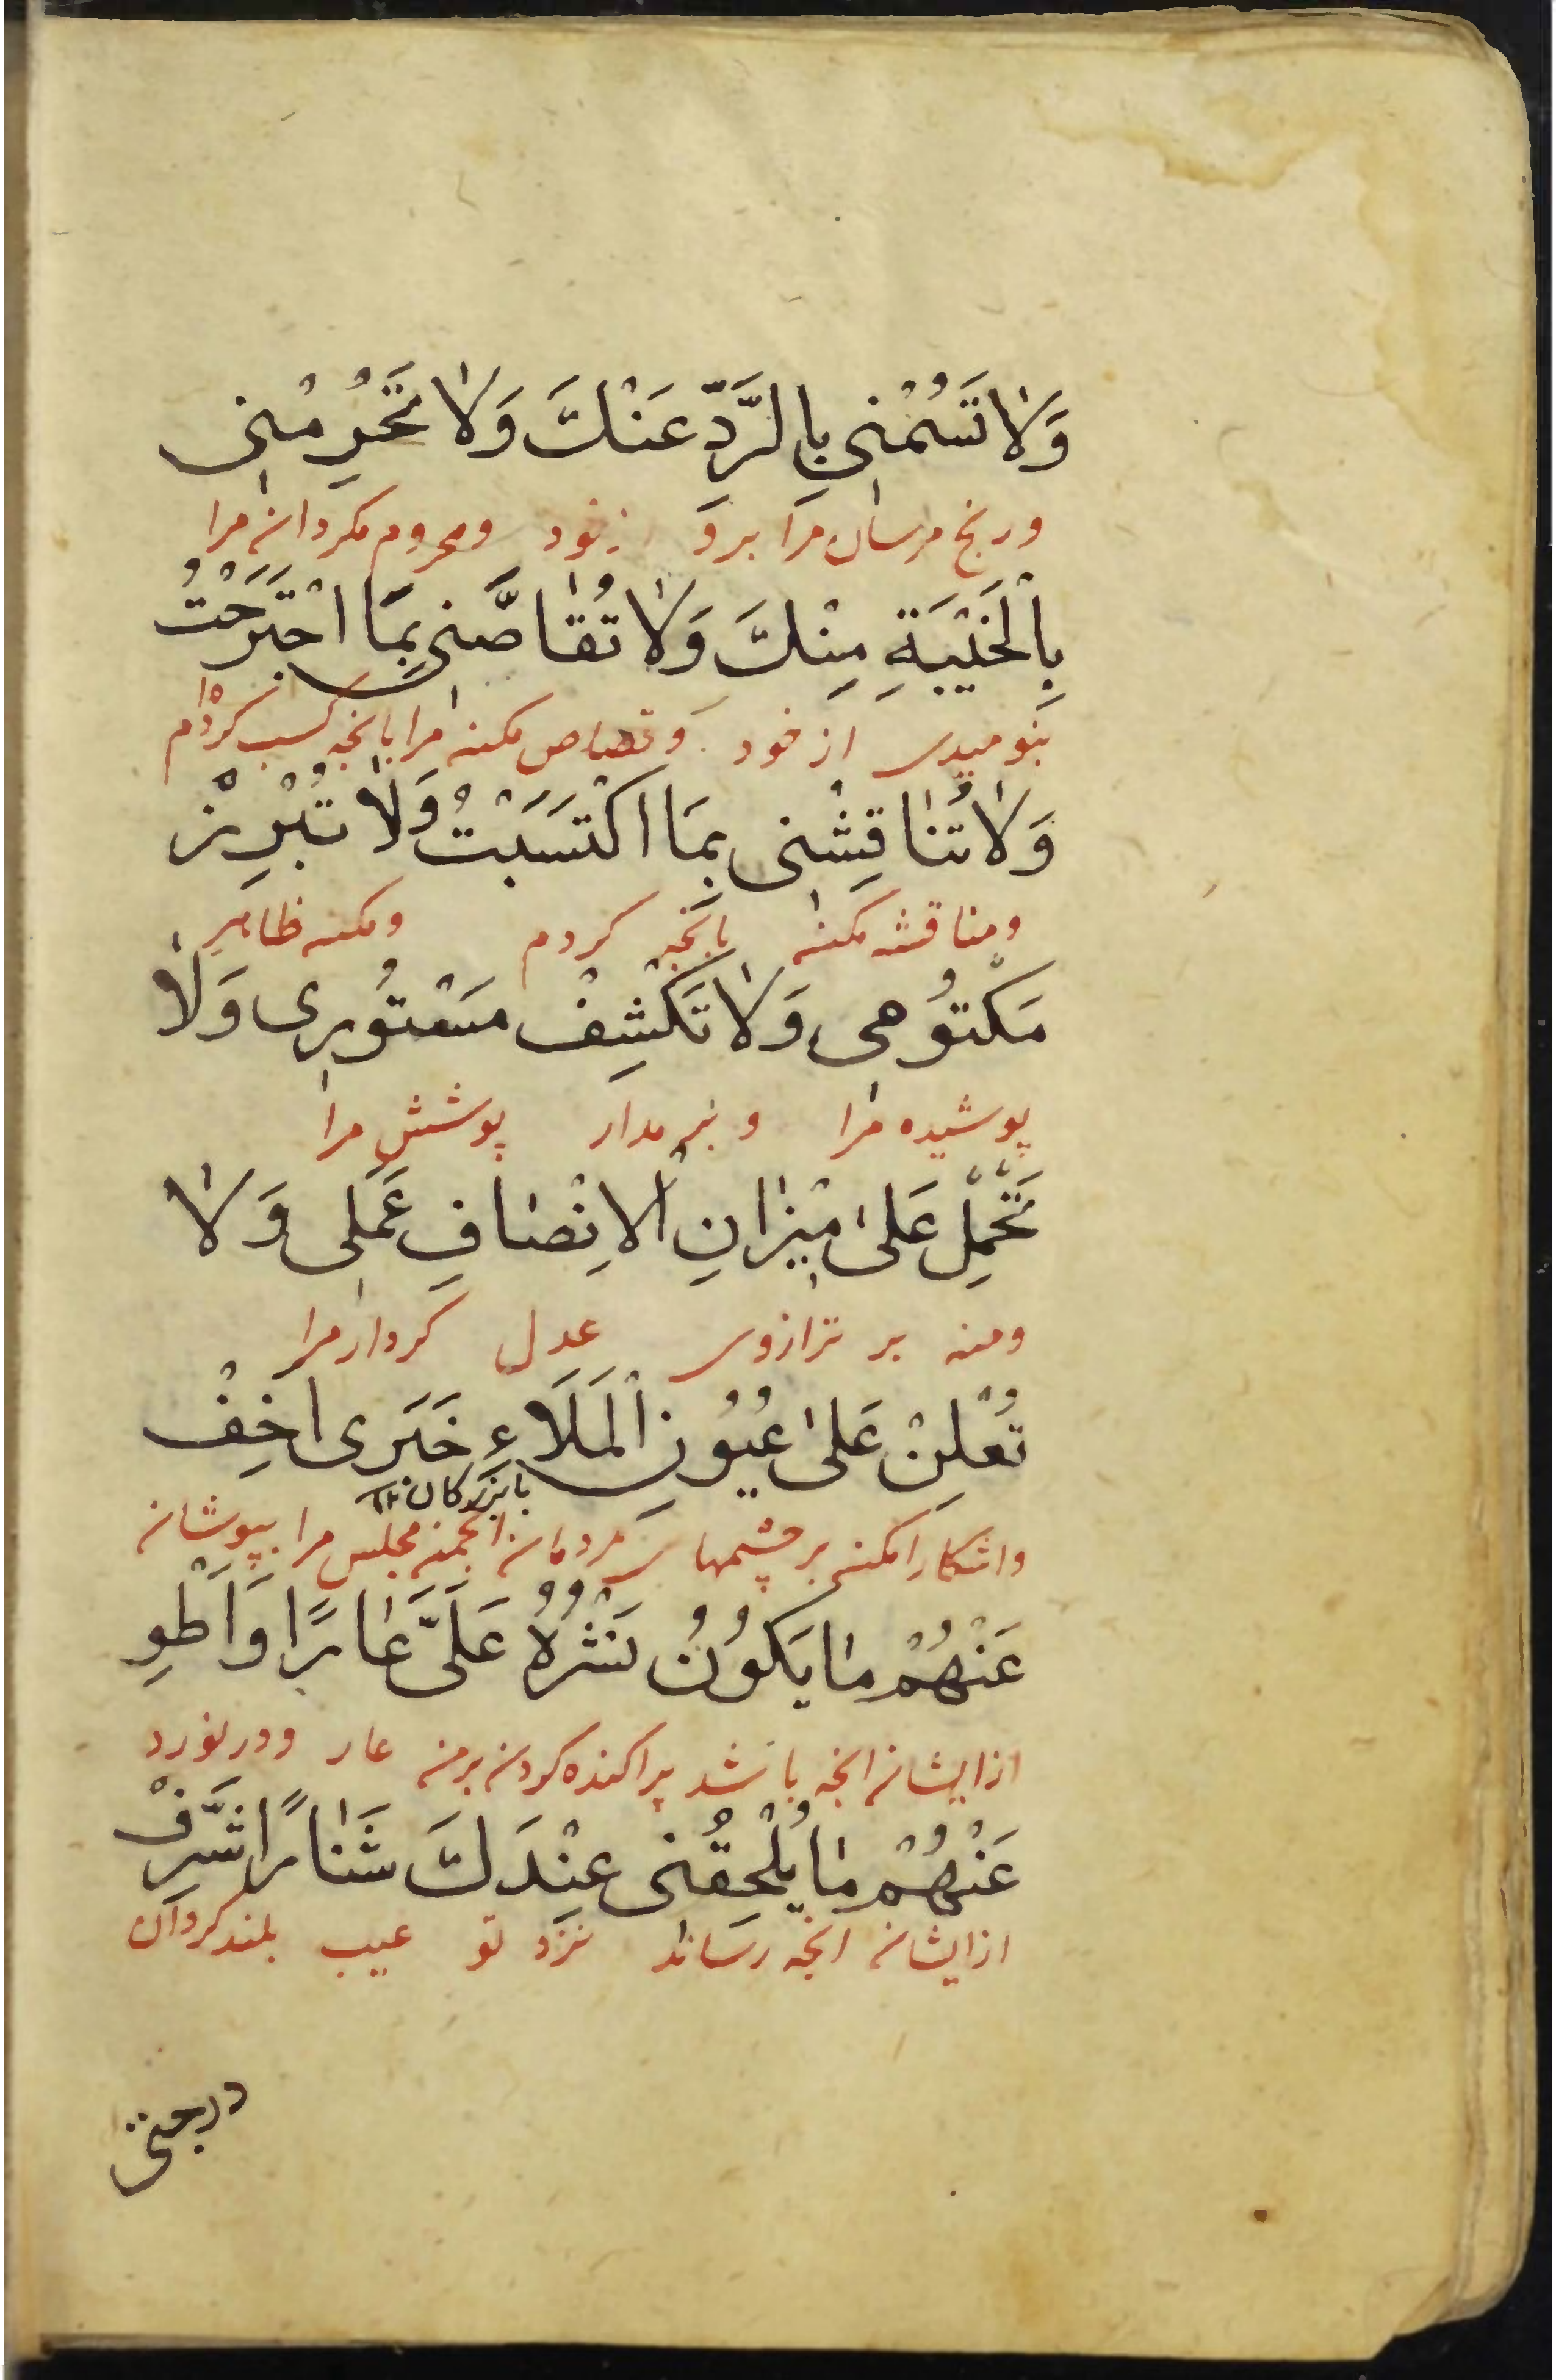 وَلاٰ تَسُمْنی بِالرَّدِّ عَنْكَ وَلاٰ تَحْرِمْنی
ورنج مرسان مرا برد زخود ومحروم مکردان مرا
بِالْخَیْبَةِ مِنْكَ وَلاٰ تُقٰاصَّنی بِمَا اجْتَرَحْتُ
بنومیدی از خود وقصاص مکن مرا بانجه کسب کردہ‌ام
وَلاٰ تُنٰاقِشْنی بِمَا اكْتَسَبْتُ وَلاٰ تُبْرِزْ
ومناقشه مکن بانجه کردم ومکن ظاهر
مَكْتُومی وَلاٰ تَكْشِفْ مَسْتُوری وَلاٰ
پوشیده مرا وبر مدار پوشش مرا
تَحْمِلْ عَلیٰ مٖیزٰانِ الْاِنْصٰافِ عَمَلی وَلاٰ
ومنه بر ترازوی عدل کردار مرا
تُعْلِنْ عَلیٰ عُیُونِ الْمَلَاءِ خَبَری اَخِفْ
بابزرکان
واشکارا مکن بر چشمهای مردمان انجمن مجلس مرا بپوشان
عَنْهُمْ مٰا یَكُونُ نَشْرُهُ عَلَیَّ عٰارًا وَاَطْوِ
از ایشان انجه باشد پراکنده کردن برمن عار ودرنورد
عَنْهُمْ مٰا یُلْحِقُنی عِنْدَكَ شَنٰارًا شَرِّفْ
از ایشان انجه رساند نزد تو عیب بلند کردان
درجتی